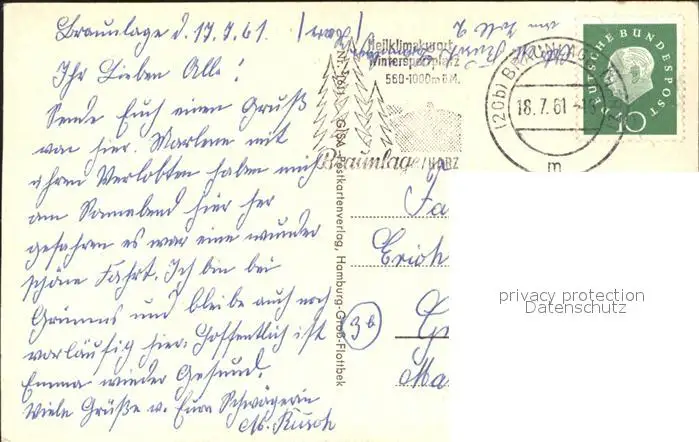 Braunlage d. 17.7.61.
Ihr Lieben Alle!
Sende Euch einen Gruß
von hier. Marlene mit
ihrem Verlobten haben mich
am Sonnabend hier her
gefahren es war eine wunder
schöne Fahrt. Ich bin bei
Grimms und bleibe auch noch
vorläufig hier. Hoffentlich ist
Emma wieder Gesund.
Viele Grüße v. Eurer Schwägerin
M. Kusch
Heilklimakurort
Wintersportplatz
560-1000m ü.M.
Braunlage/HARZ
(20b) BRAUNLAGE
18.7.61
m
DEUTSCHE BUNDESPOST
10
GISA-Postkartenverlag, Hamburg-Groß-Flottbek
Fa
Erich
3b
Ma
privacy protection
Datenschutz